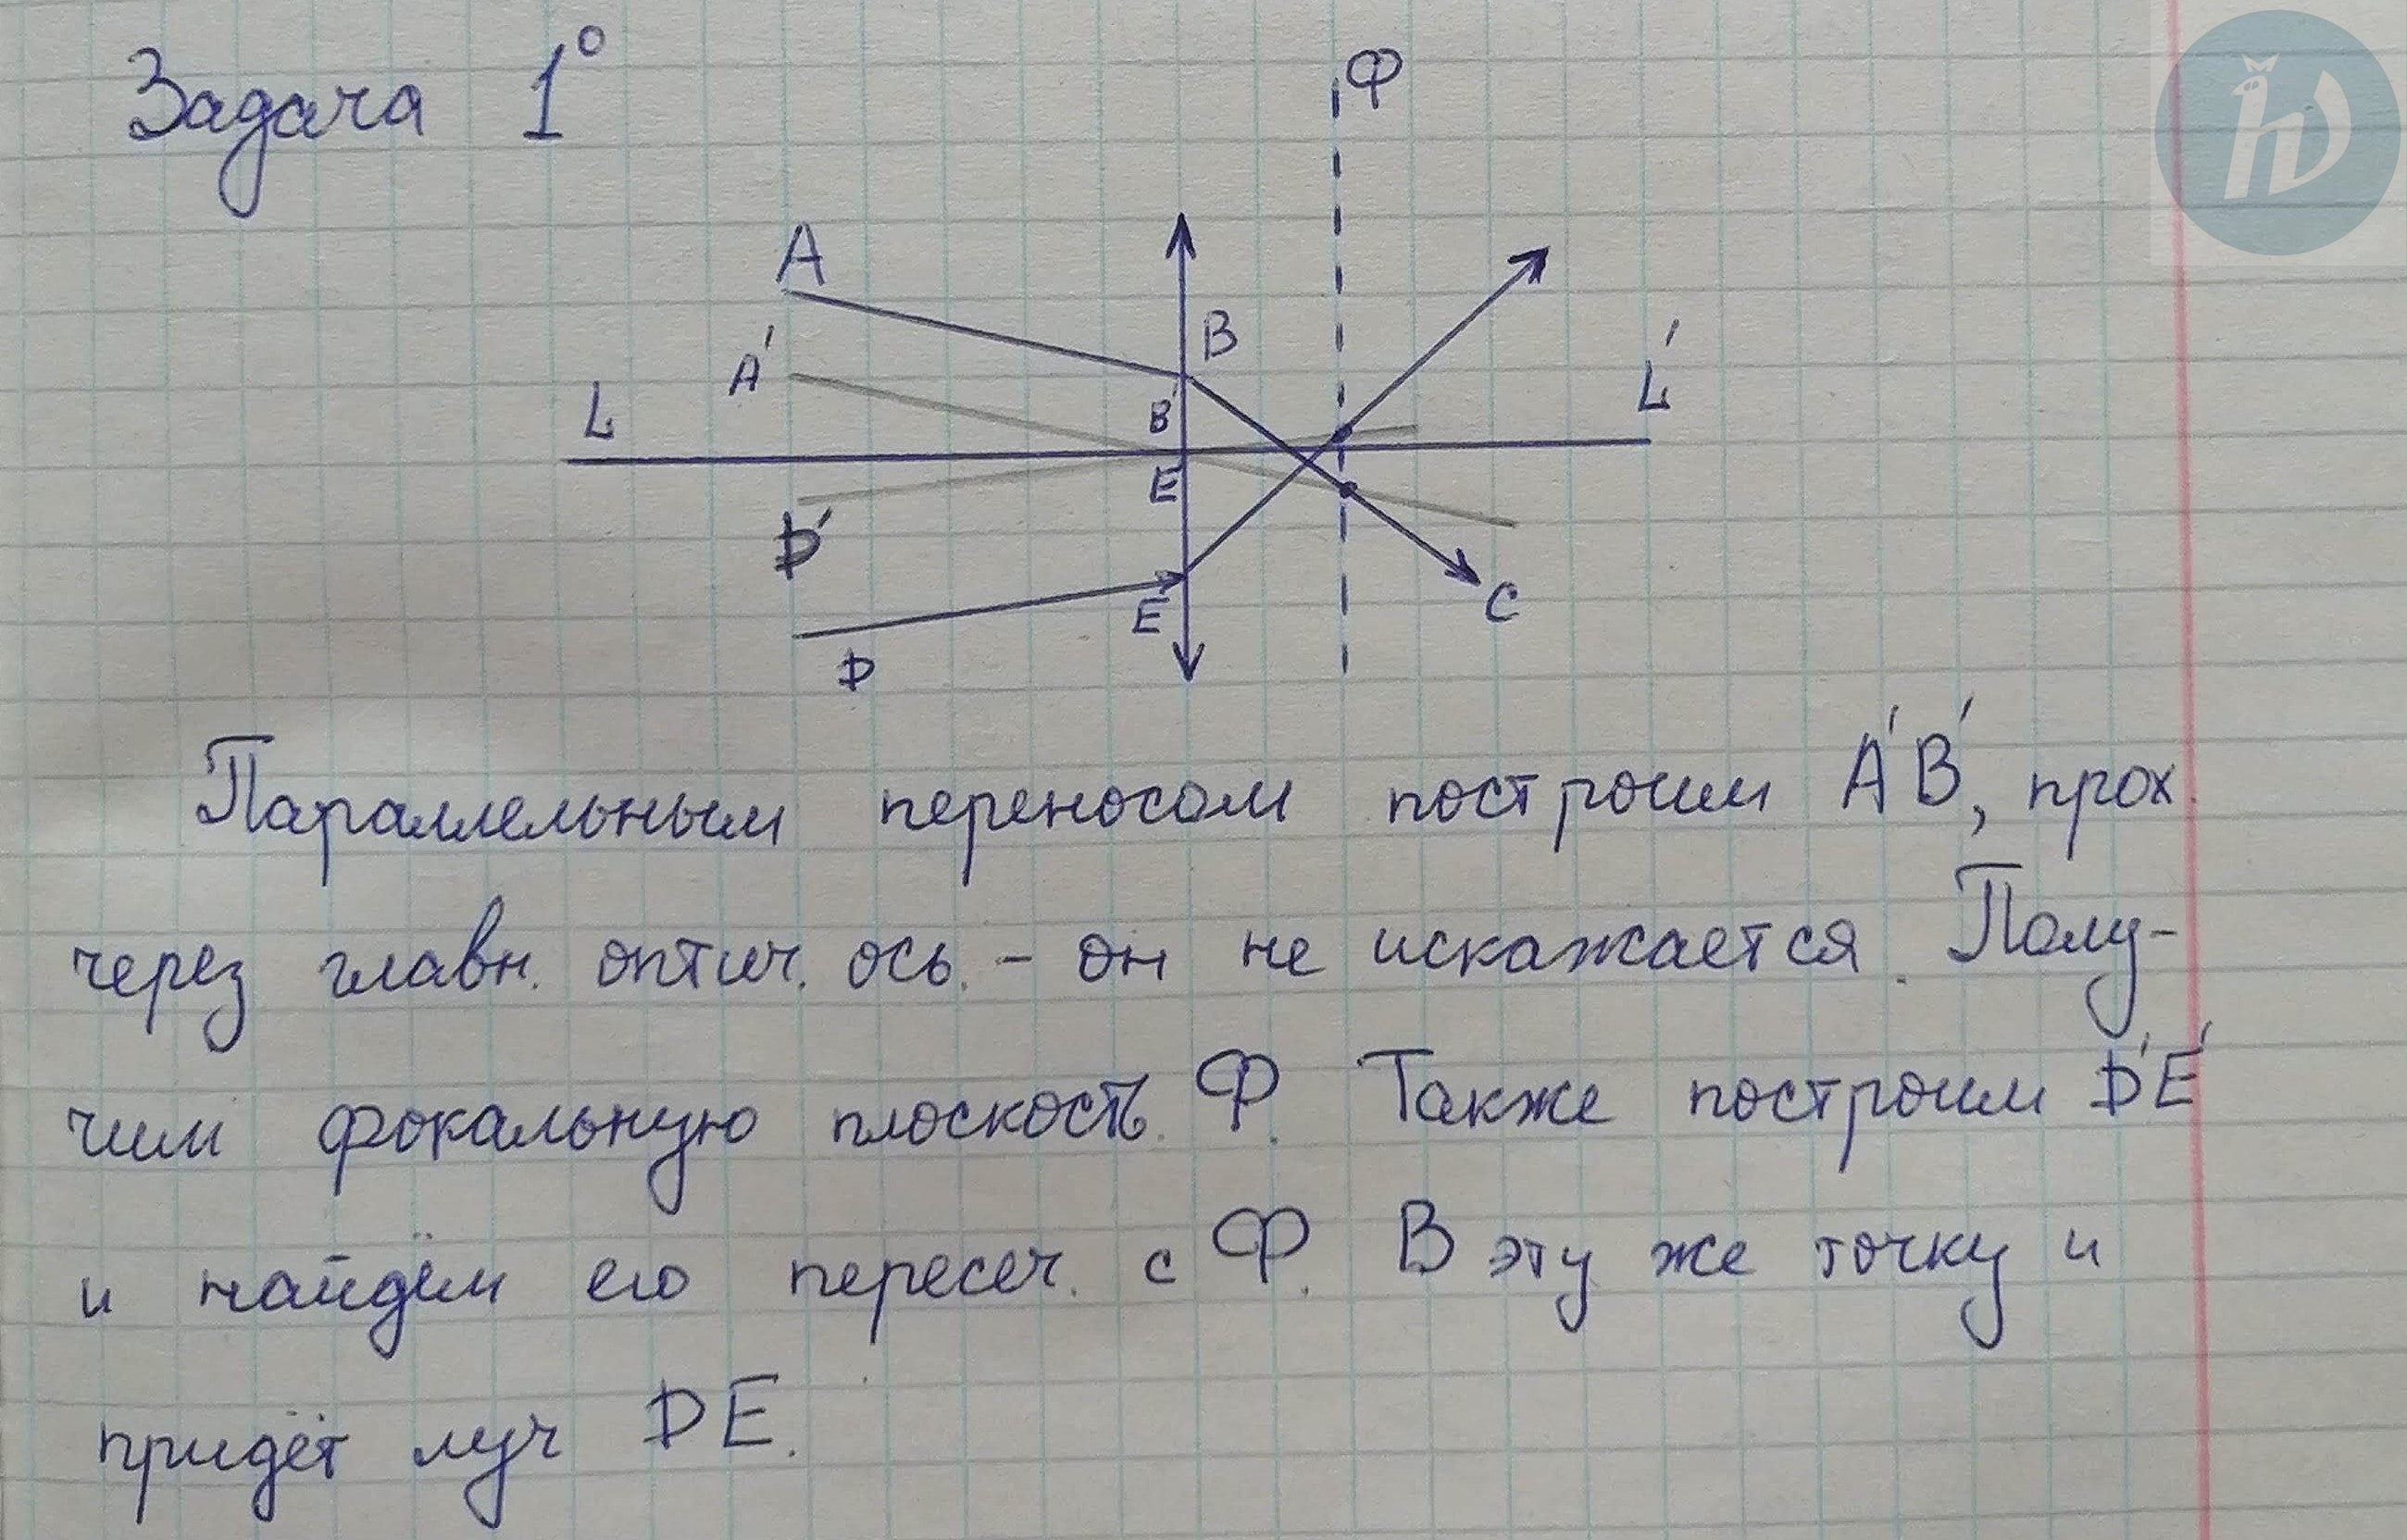 Задача 1°
Ф
A
B
A'
L'
L
B'
E
D'
E
C
D
Параллельным переносом построим A'B', прох.
через главн. оптич. ось. - он не искажается. Полу-
чим фокальную плоскость Ф. Также построим D'E'
и найдём его пересеч. с Ф. В эту же точку и
придёт луч DE.